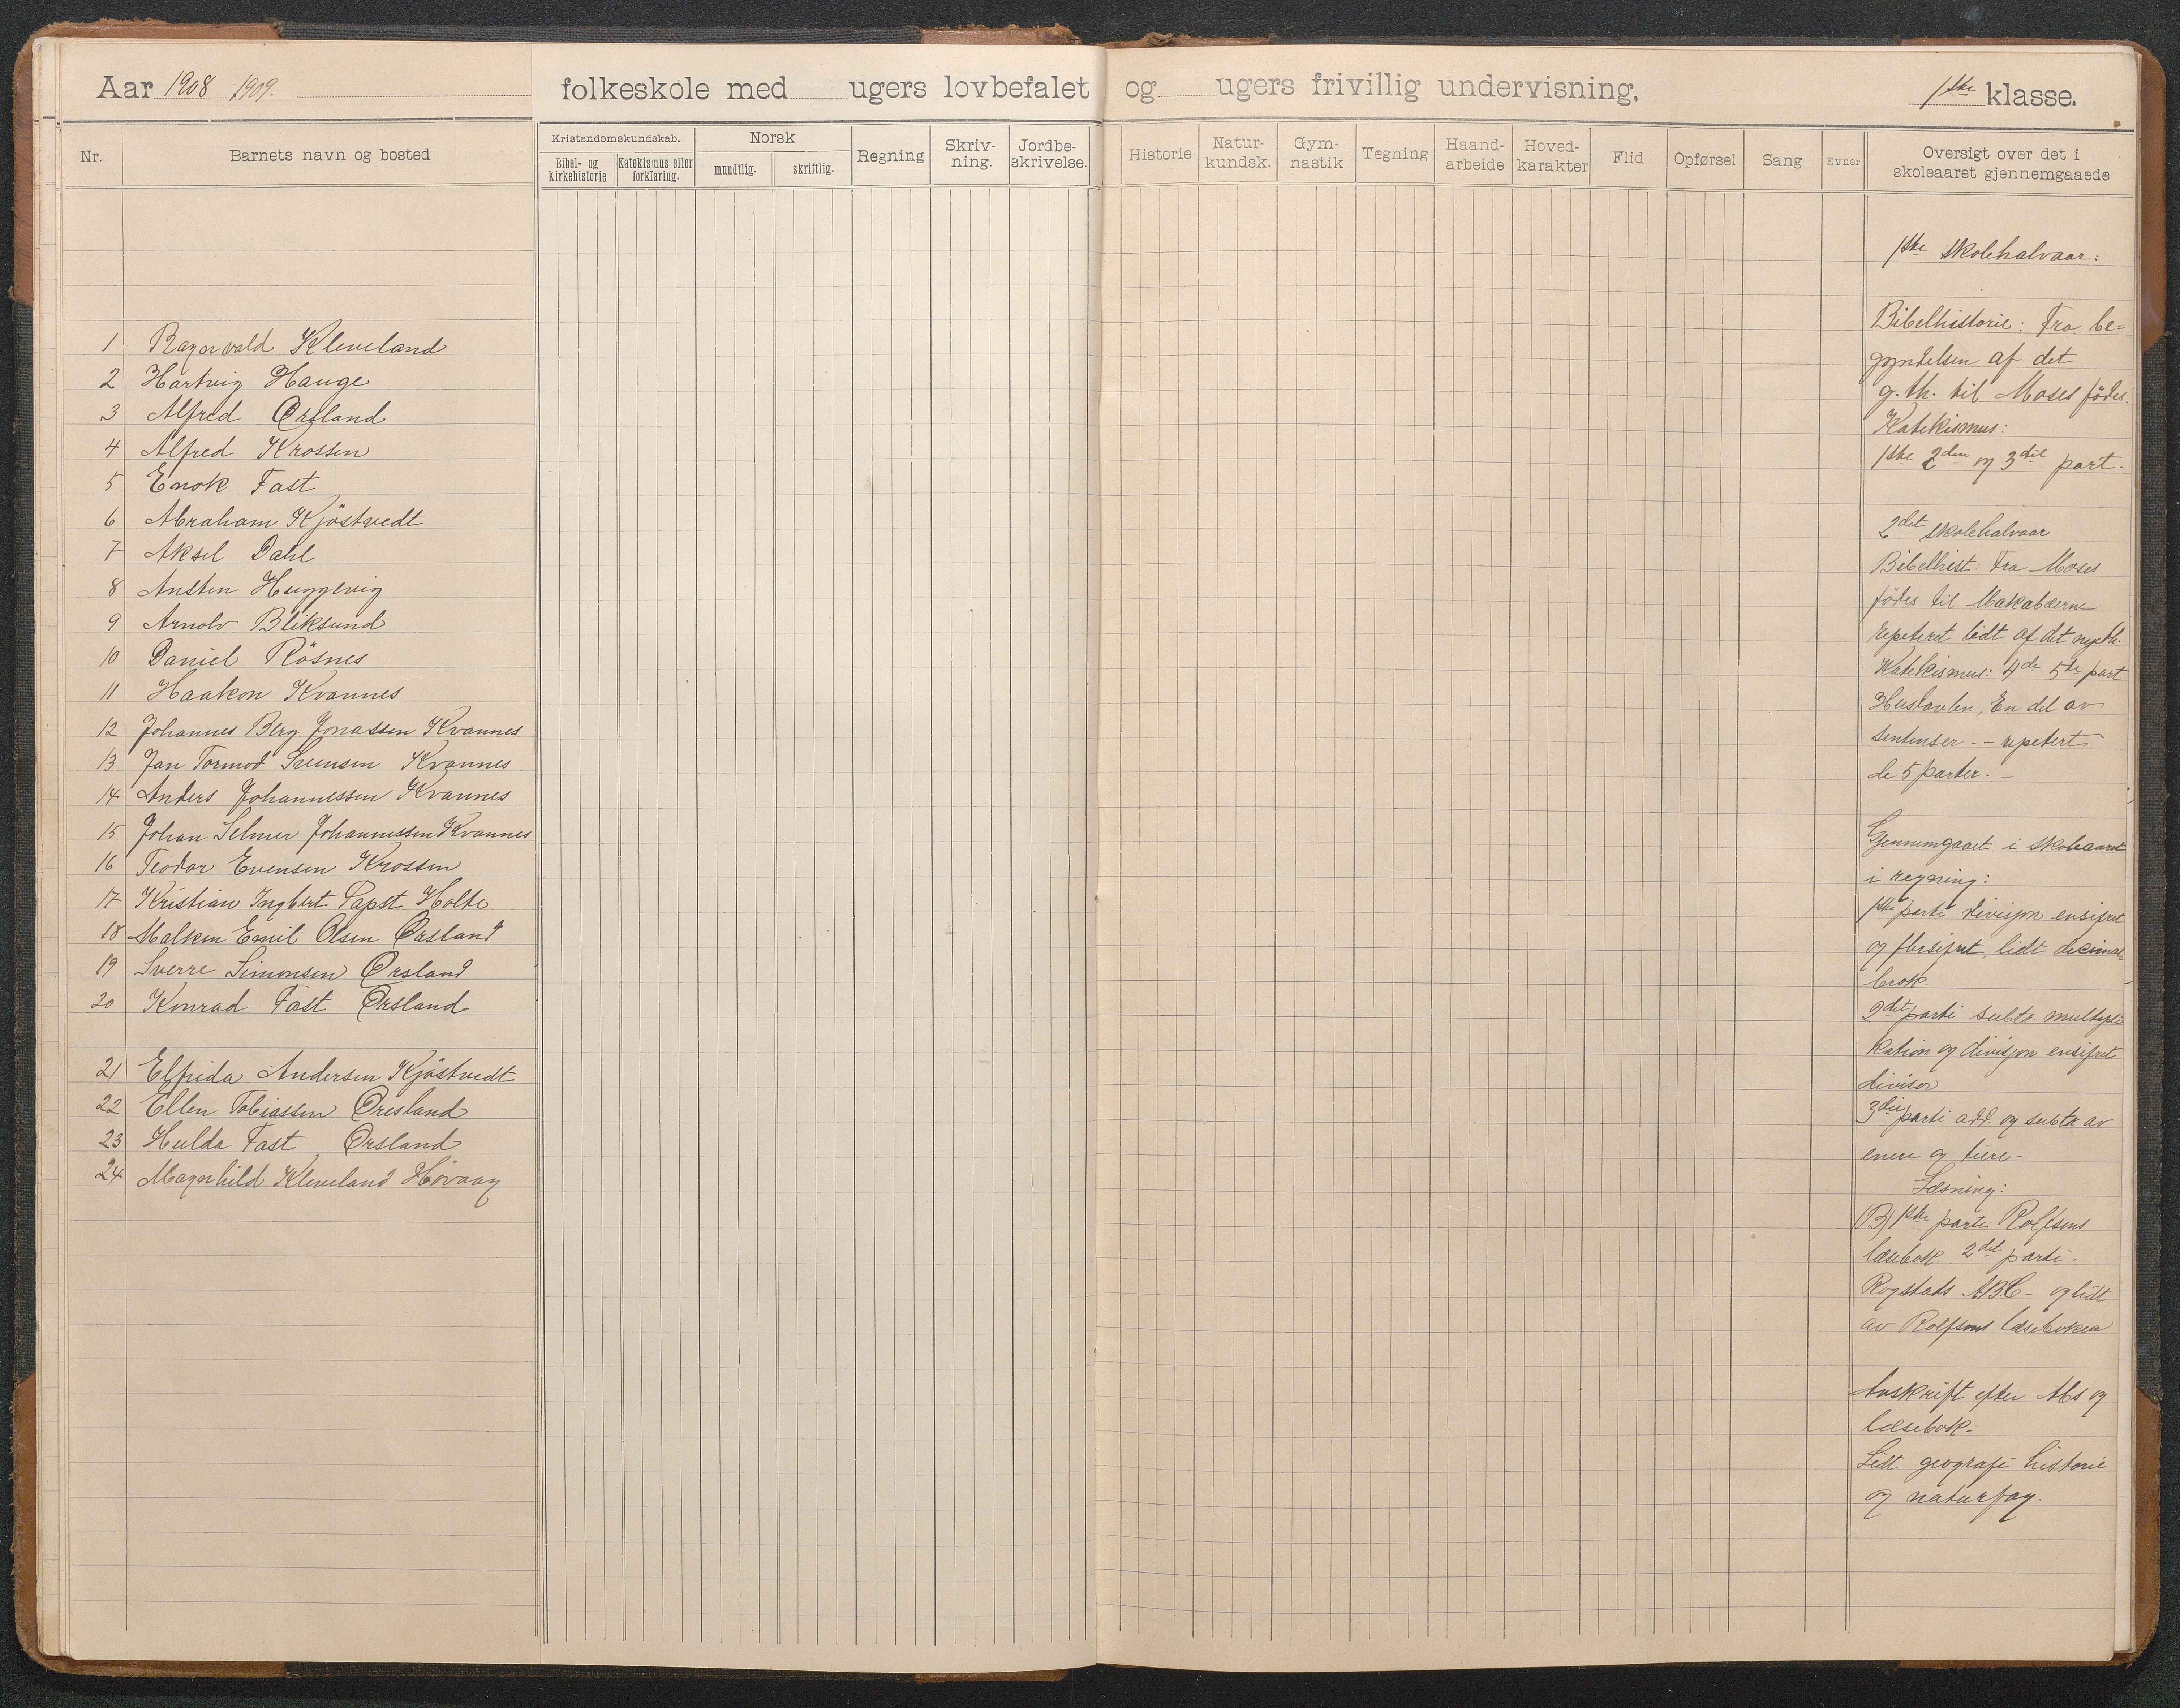 Aar 1908 1909.
folkeskole med ugers lovbefalet og ugers frivillig undervisning,
1ste klasse.
Nr.
Barnets navn og bosted
Kristendomskundskab.
Bibel- og kirkehistorie
Katekismus eller forklaring.
Norsk
mundtlig.
skriftlig.
Regning
Skriv-
ning.
Jordbe-
skrivelse.
Historie
Natur-
kundsk.
Gym-
nastik
Tegning
Haand-
arbeide
Hoved-
karakter
Flid
Opførsel
Sang
Evner
Oversigt over det i
skoleaaret gjennemgaaede
1 Ragnvald Kleveland
2 Hartvig Hauge
3 Alfred Ørsland
4 Alfred Krossen
5 Enok Fast
6 Abraham Kjöstvedt
7 Aksel Dahl
8 Ansten Huggevig
9 Arnolv Bliksund
10 Daniel Rösnes
11 Haakon Kvannes
12 Johannes Berg Jonassen Kvannes
13 Jan Tormod Svensen Kvannes
14 Anders Johannessen Kvannes
15 Johan Selmer Johannessen Kvannes
16 Teodor Evensen Krossen
17 Kristian Ingbert Papst Holte
18 Malkem Emil Olsen Ørsland
19 Sverre Simonsen Ørsland
20 Konrad Fast Ørsland
21 Elfrida Andersen Kjöstvedt
22 Ellen Tobiassen Øresland
23 Hulda Fast Ørsland
24 Magnhild Kleveland Høvaag
1ste skolehalvaar:
Bibelhistorie: Fra be=
gyndelsen af det
g. th. til Moses födes.
Katekismus:
1ste 2den og 3die part.
2det skolehalvaar
Bibelhist: Fra Moses
födes til Makabæerne
repeteret lidt af det nye th.
Katekismus: 4de 5te part
Hustavlen, En del av
sentenser -- repetert
de 5 parter. -
Gjennemgaaet i skoleaaret
i regning:
1ste parti divisjon ensifret
og flersifret, lidt decimal
brok.
2det parti subtr. multipli
kation og divisjon ensifret
divisor
3die parti add. og subtr av
enere og tiere -
Læsning:
B) 1ste parti: Rolfsens
læsebok. 2det parti.
Rogstads ABC - og lidt
av Rolfsens læseboken
Avskrift efter Abc og
læsebok.
Lidt geografi historie
og naturfag.